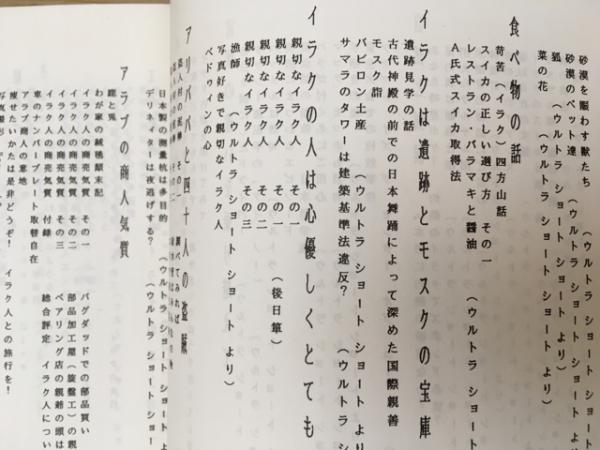 砂漠を賑わす獣たち
砂漠のペット達　（ウルトラ ショート ショート
狐　（ウルトラ ショート ショート より）
菜の花　（ウルトラ ショート ショート より）
食べ物の話
苛苦（イラク）四方山話
スイカの正しい選び方　その一
レストラン・バラマキと醤油　（ウルトラ ショート
A氏式スイカ取得法
イラクは遺跡とモスクの宝庫
遺跡見学の話
古代神殿の前での日本舞踊によって深めた国際親善
モスク詣
バビロン土産　（ウルトラ ショート ショート よ
サマラのタワーは建築基準法違反？　（ウルトラ シ
イラクの人は心優しくとても
親切なイラク人　その一
親切なイラク人　その二　（後日箪）
親切なイラク人　その二
親切なイラク人　その三
漁師　（ウルトラ ショート ショート より）
写真好きで親切なイラク人
ベドウィンの心
アリババと四十人の盗賊
日本製の商量杭は多目的　（ウルトラ ショート ショート
デリネィターは夜逃げする？　（ウルトラ ショート
アラブの商人気質
鹿と兎
わが家の絨毯顛末記
イラク人の商売気質　その一　バグダッドでの部品買い
イラク人の商売気質　その二　部品加工屋（旋盤工）の親
イラク人の商売気質　その三　ベアリング店の親着の頭は
イラク人の商売気質　付録　総合評定　イラク人につい
車のナンバープレート取替自在
アラブ商人の意地
痩せたいかたは是非どうぞ！　イラク人との旅行を！